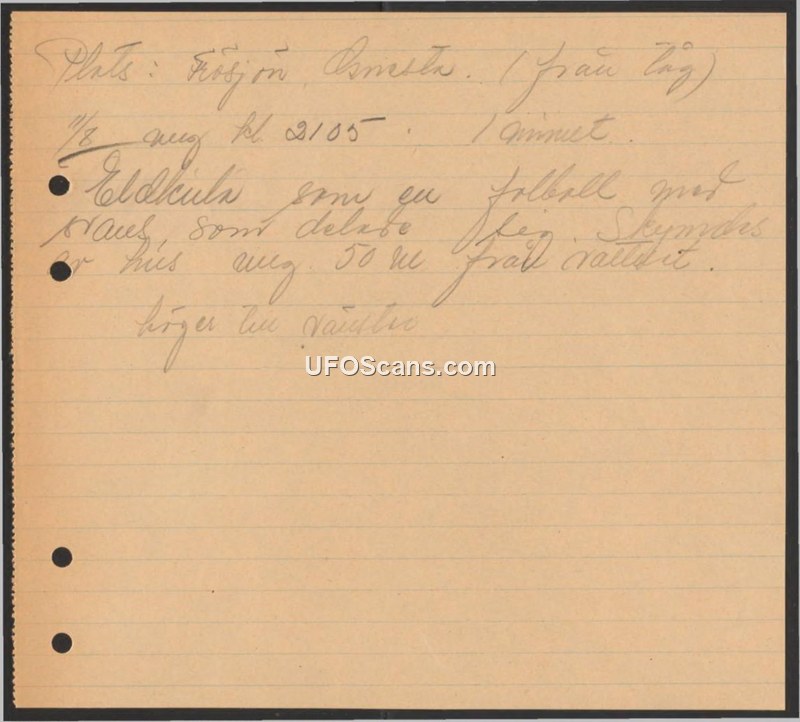 Plats: Frösjön, Gnesta. (från tåg)
11/8 ung kl. 2105. 1 minut.
Eldkula som en fotboll med
svans som delade sig. Skymdes
av hus ung. 50 m från vattnet.
höger till vänster
UFOScans.com